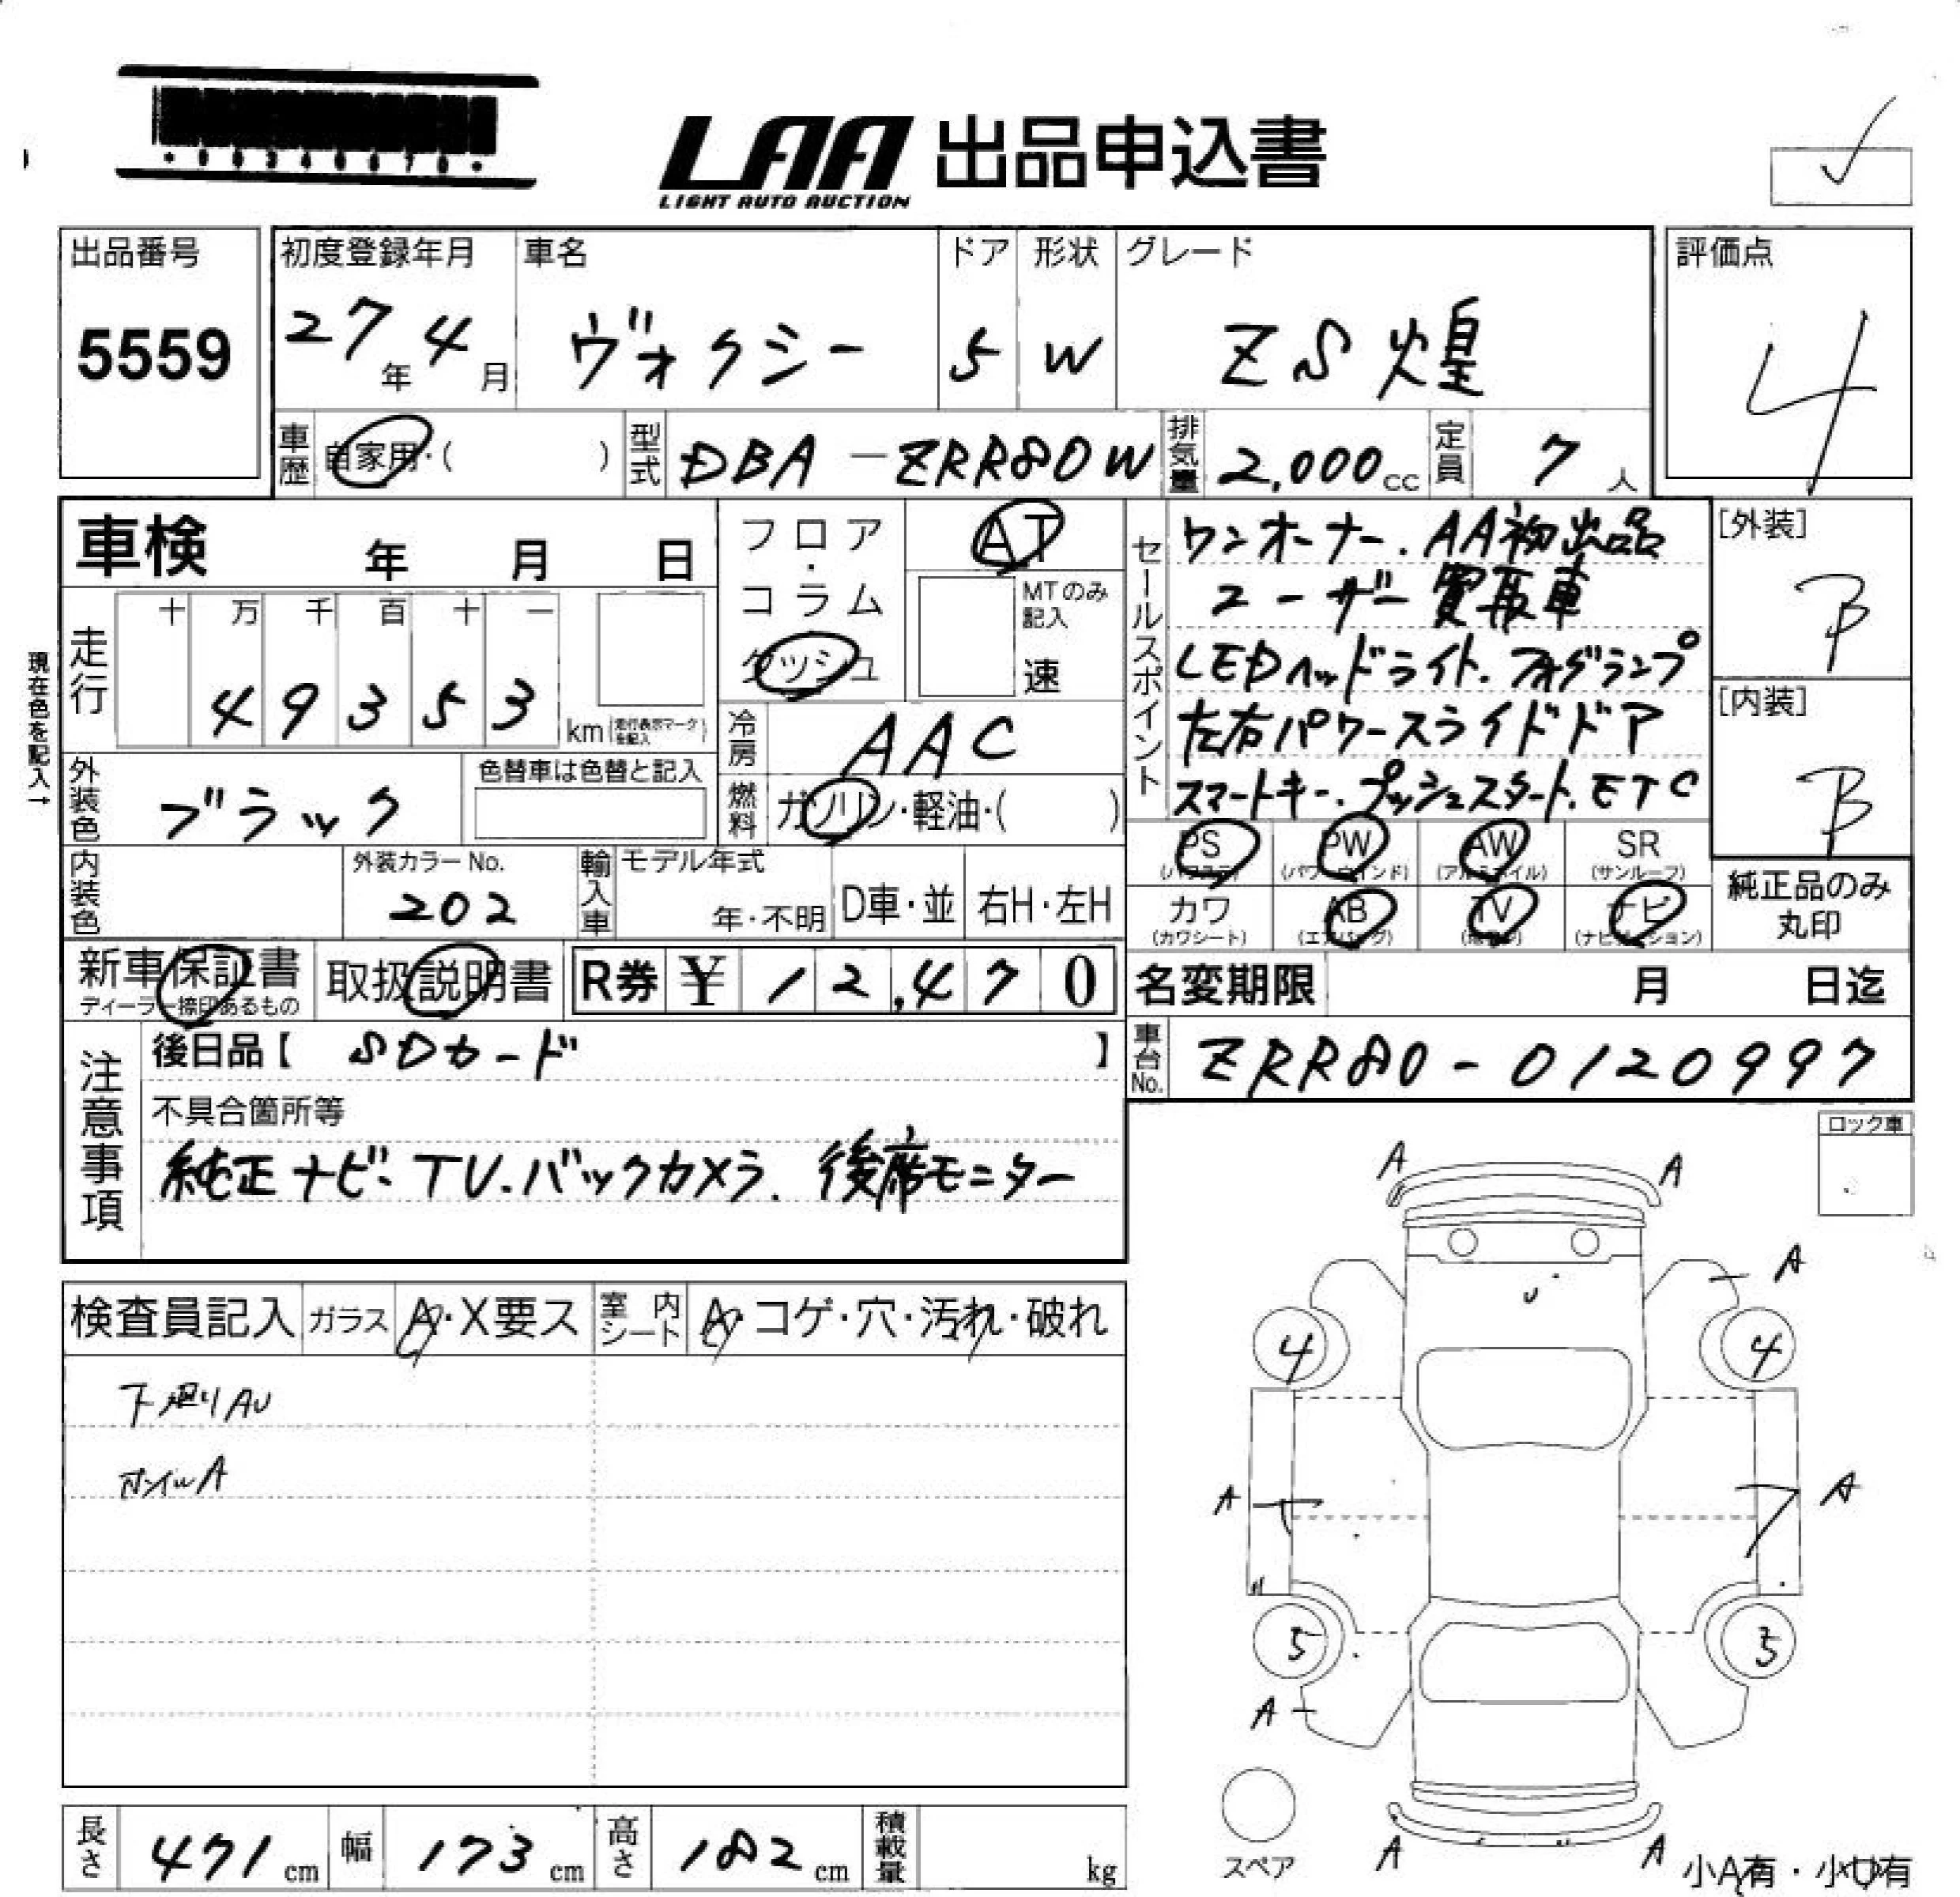 LAA 出品申込書
LIGHT AUTO AUCTION
出品番号
5559
初度登録年月
27年4月
車名
ヴォクシー
ドア
5
形状
W
グレード
ZS煌
評価点
4
車歴
自家用・( )
型式
DBA-ZRR80W
排気量
2,000cc
定員
7人
車検 年 月 日
フロア・コラム
ダッシュ
AT
MTのみ記入
速
セールスポイント
ワンオーナー.AA初出品
ユーザー買取車
LEDヘッドライト.フォグランプ
左右パワースライドドア
スマートキー.プッシュスタート.ETC
[外装]
B
[内装]
B
現在色を記入→
走行
十 万 千 百 十 一
4 9 3 5 3
km(走行表示マークを記入)
冷房
AAC
外装色
ブラック
色替車は色替と記入
燃料
ガソリン・軽油・( )
内装色
外装カラーNo.
202
輸入車
モデル年式
年・不明
D車・並
右H・左H
PS
(パワステ)
PW
(パワーウインド)
AW
(アルミホイル)
SR
(サンルーフ)
カワ
(カワシート)
AB
(エアバッグ)
TV
ナビ
(ナビゲーション)
純正品のみ
丸印
新車保証書
ディーラー捺印あるもの
取扱説明書
R券 ¥ 12,470
名変期限 月 日迄
車台No.
ZRR80-0120997
注意事項
後日品【 SDカード 】
不具合箇所等
純正ナビ.TV.バックカメラ.後席モニター
ロック車
検査員記入
ガラス
A・X要ス
室内シート
A・コゲ・穴・汚れ・破れ
下廻りAU
ホイルA
A A
A
4 4
A A
5 5
A
A A
スペア
小A有・小U有
長さ
471cm
幅
173cm
高さ
182cm
積載量
kg